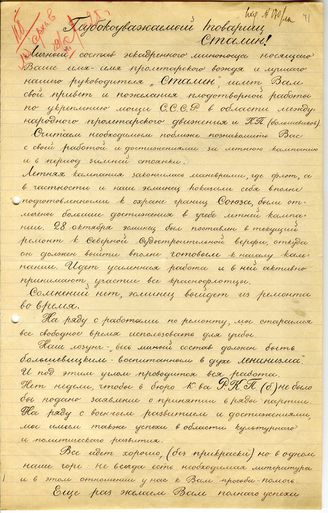 Глубокоуважаемый Товарищ
Сталин!
Личный состав эскадренного миноносца носящего
Ваше имя - имя пролетарского вождя и лучшего
нашего руководителя „Сталин", шлет Вам
свой привет и пожелания плодотворной работы
по укреплению мощи СССР в области между-
народного пролетарского движения и
Считаем необходимым поближе познакомить Вас
с своей работой и достижениями за летнюю кампанию
и в период зимней стоянки.
Летняя кампания закончилась маневрами, где флот, а
в частности и наш эсминец показали себя вполне
подготовленными к охране границ Союза, были от-
мечены большие достижения в учебе летней кампа-
нии. 28 октября эсминец был поставлен в текущий
ремонт к Северной Судостроительной верфи, откуда
он должен выйти вполне готовым к началу кам-
пании. Идет усиленная работа и в ней активно
принимают участие все краснофлотцы.
Сомнений нет, эсминец выйдет из ремонта
во время.
На ряду с работами по ремонту, мы стараемся
все свободное время использовать для учебы.
Наш лозунг - весь личный состав должен быть
большевицким - воспитанном в духе ленинизма"
И под этим углом проводится вся работа.
Нет недели, чтобы в бюро к-ва РКП(б) не было
бы подано заявление о принятии в ряды партии.
На ряду с военным развитием и достижениями,
мы имеем также успехи в области культурного
и политического развития.
Все идет хорошо, (без прикрасы) но в одном
наше горе - не всегда есть необходимая литература
и в этом отношении у нас к Вам просьба - помочь.
Еще раз желаем Вам полного успеха